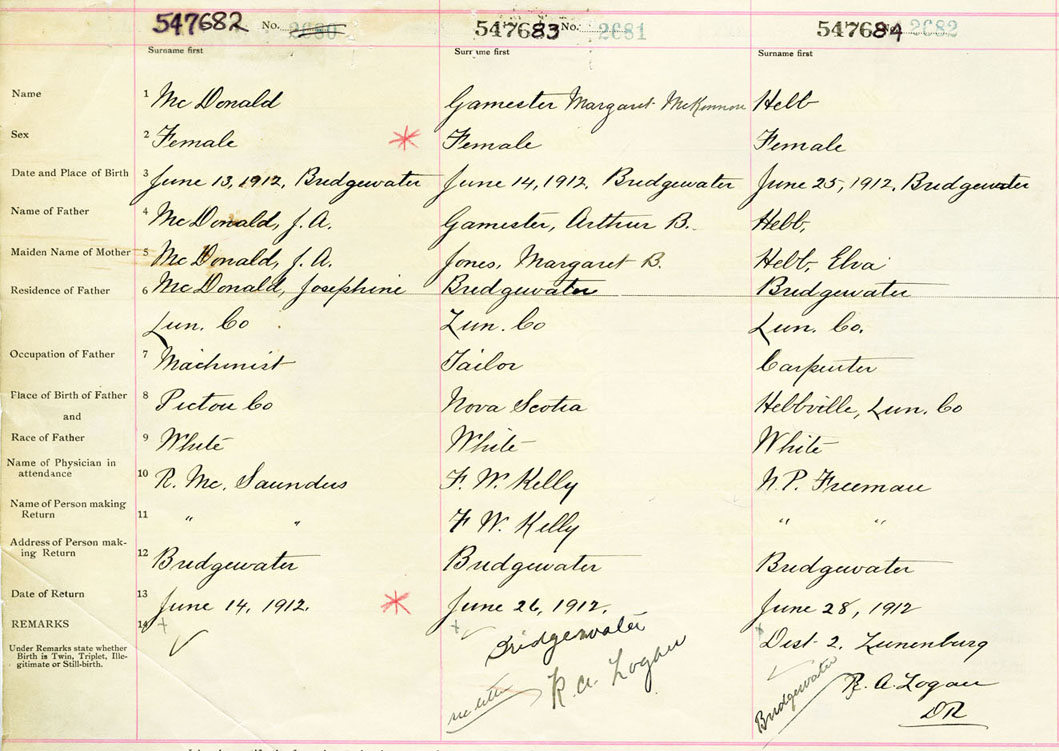 547682 No. 2680 547683 No. 2681 547684 No. 2682
Surname first Surname first Surname first
Name 1 McDonald Gamester Margaret McKinnon Hebb
Sex 2 Female Female Female
Date and Place of Birth 3 June 13, 1912, Bridgewater June 14, 1912. Bridgewater June 25, 1912, Bridgewater
Name of Father 4 McDonald, J. A. Gamester, Arthur B. Hebb,
Maiden Name of Mother 5 McDonald, J. A. Jones, Margaret B. Hebb, Elva
Residence of Father 6 McDonald, Josephine Bridgewater Bridgewater
Lun. Co Lun. Co Lun. Co.
Occupation of Father 7 Machinist Tailor Carpenter
Place of Birth of Father 8 Pictou Co Nova Scotia Hebbville, Lun. Co
and
Race of Father 9 White White White
Name of Physician in
attendance 10 R. Mc. Saunders F. W. Kelly N. P. Freeman
Name of Person making
Return 11 " " F W. Kelly " "
Address of Person mak-
ing Return 12 Bridgewater Bridgewater Bridgewater
Date of Return 13 June 14, 1912. June 26, 1912. June 28, 1912
REMARKS 14 Bridgewater Dist 2. Lunenburg
Under Remarks state whether
Birth is Twin, Triplet, Ille-
gitimate or Still-birth.
see letter R. A. Logan Bridgewater R. A. Logan
DR